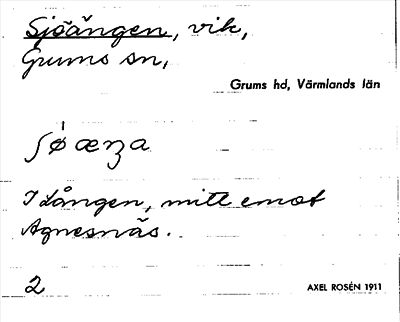 Sjöängen, vik,
Grums sn,
Grums hd, Värmlands län
I Lången, mitt emot
Agnesnäs.
2
AXEL ROSÉN 1911